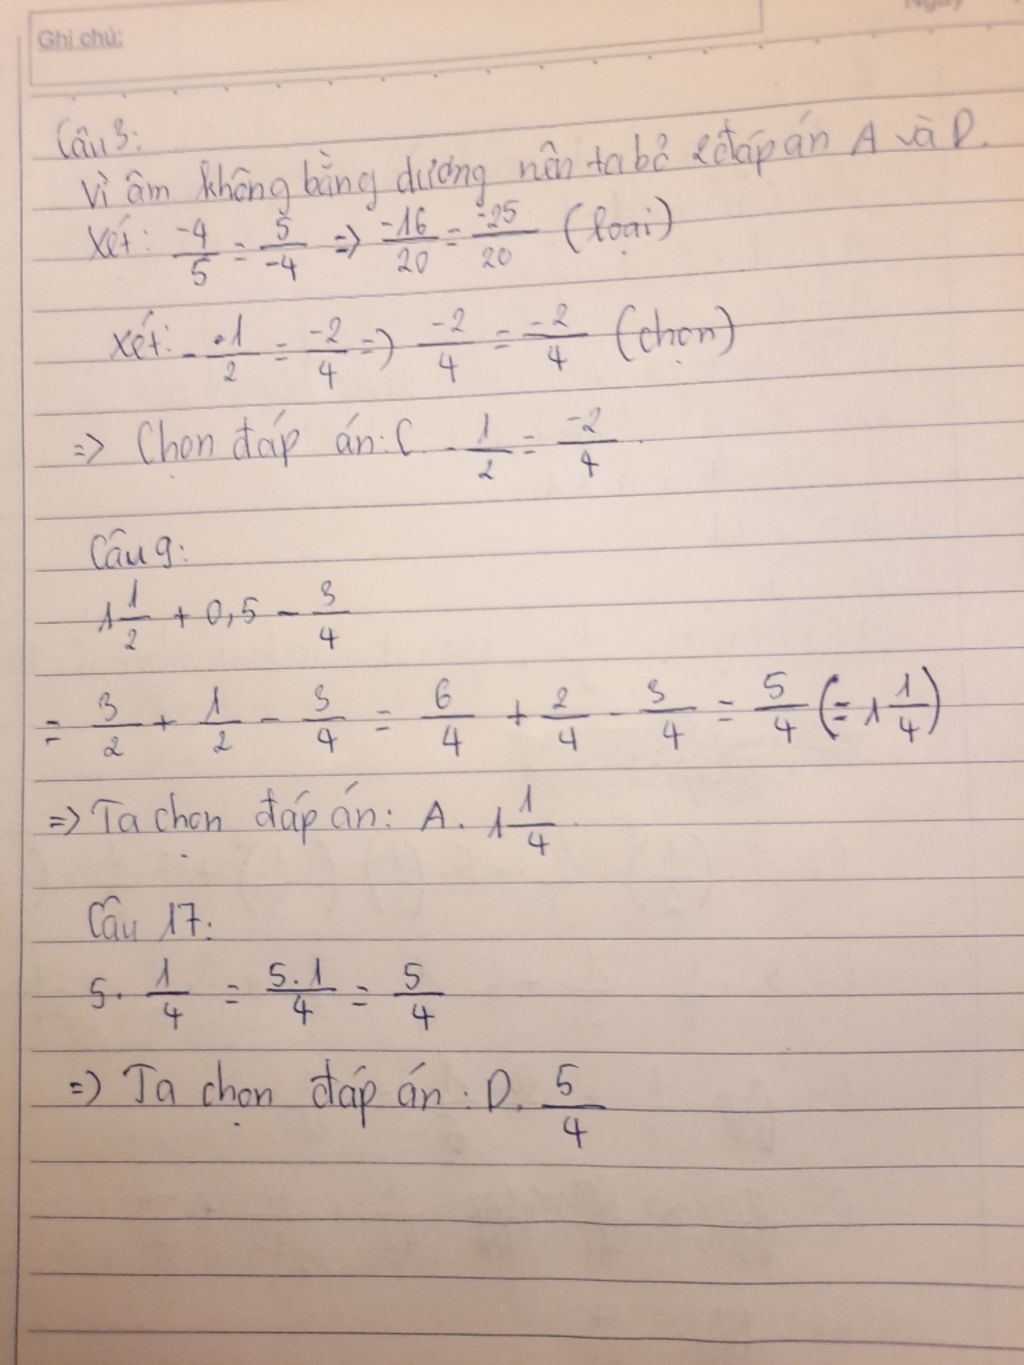 Ghi chú:
Ngày
Câu 3:
Vì âm không bằng dương nên ta bỏ 2 đáp án A và D.
Xét: -4/5 = 5/-4 => -16/20 = -25/20 (loại)
Xét: - 1/2 = -2/4 => -2/4 = -2/4 (chọn)
=> Chọn đáp án: C. - 1/2 = -2/4.
Câu 9:
1 1/2 + 0,5 - 3/4
= 3/2 + 1/2 - 3/4 = 6/4 + 2/4 - 3/4 = 5/4 (= 1 1/4)
=> Ta chọn đáp án: A. 1 1/4.
Câu 17:
5. 1/4 = 5.1/4 = 5/4
=> Ta chọn đáp án: D. 5/4